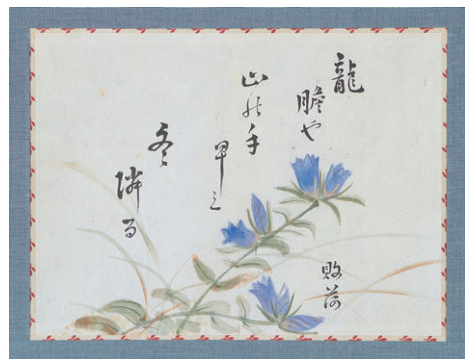 龍
膽や
山の手
早く
冬
隣る
敗荷